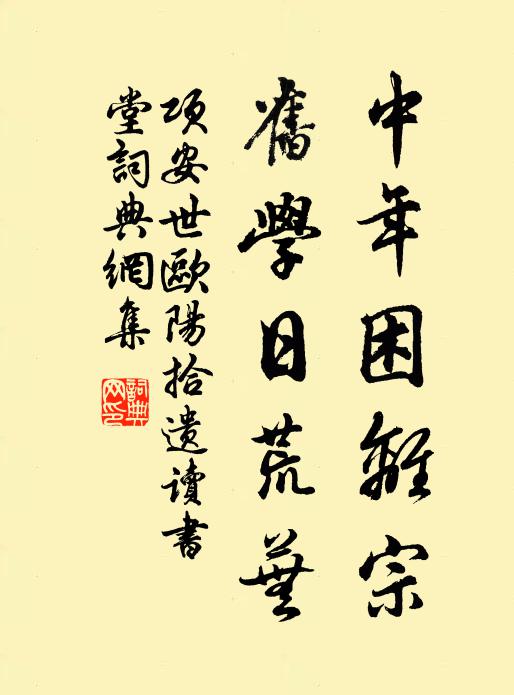 中年困離宗
舊學日荒蕪
項安世歐陽拾遺讀書
堂詞典網集
詞典網印